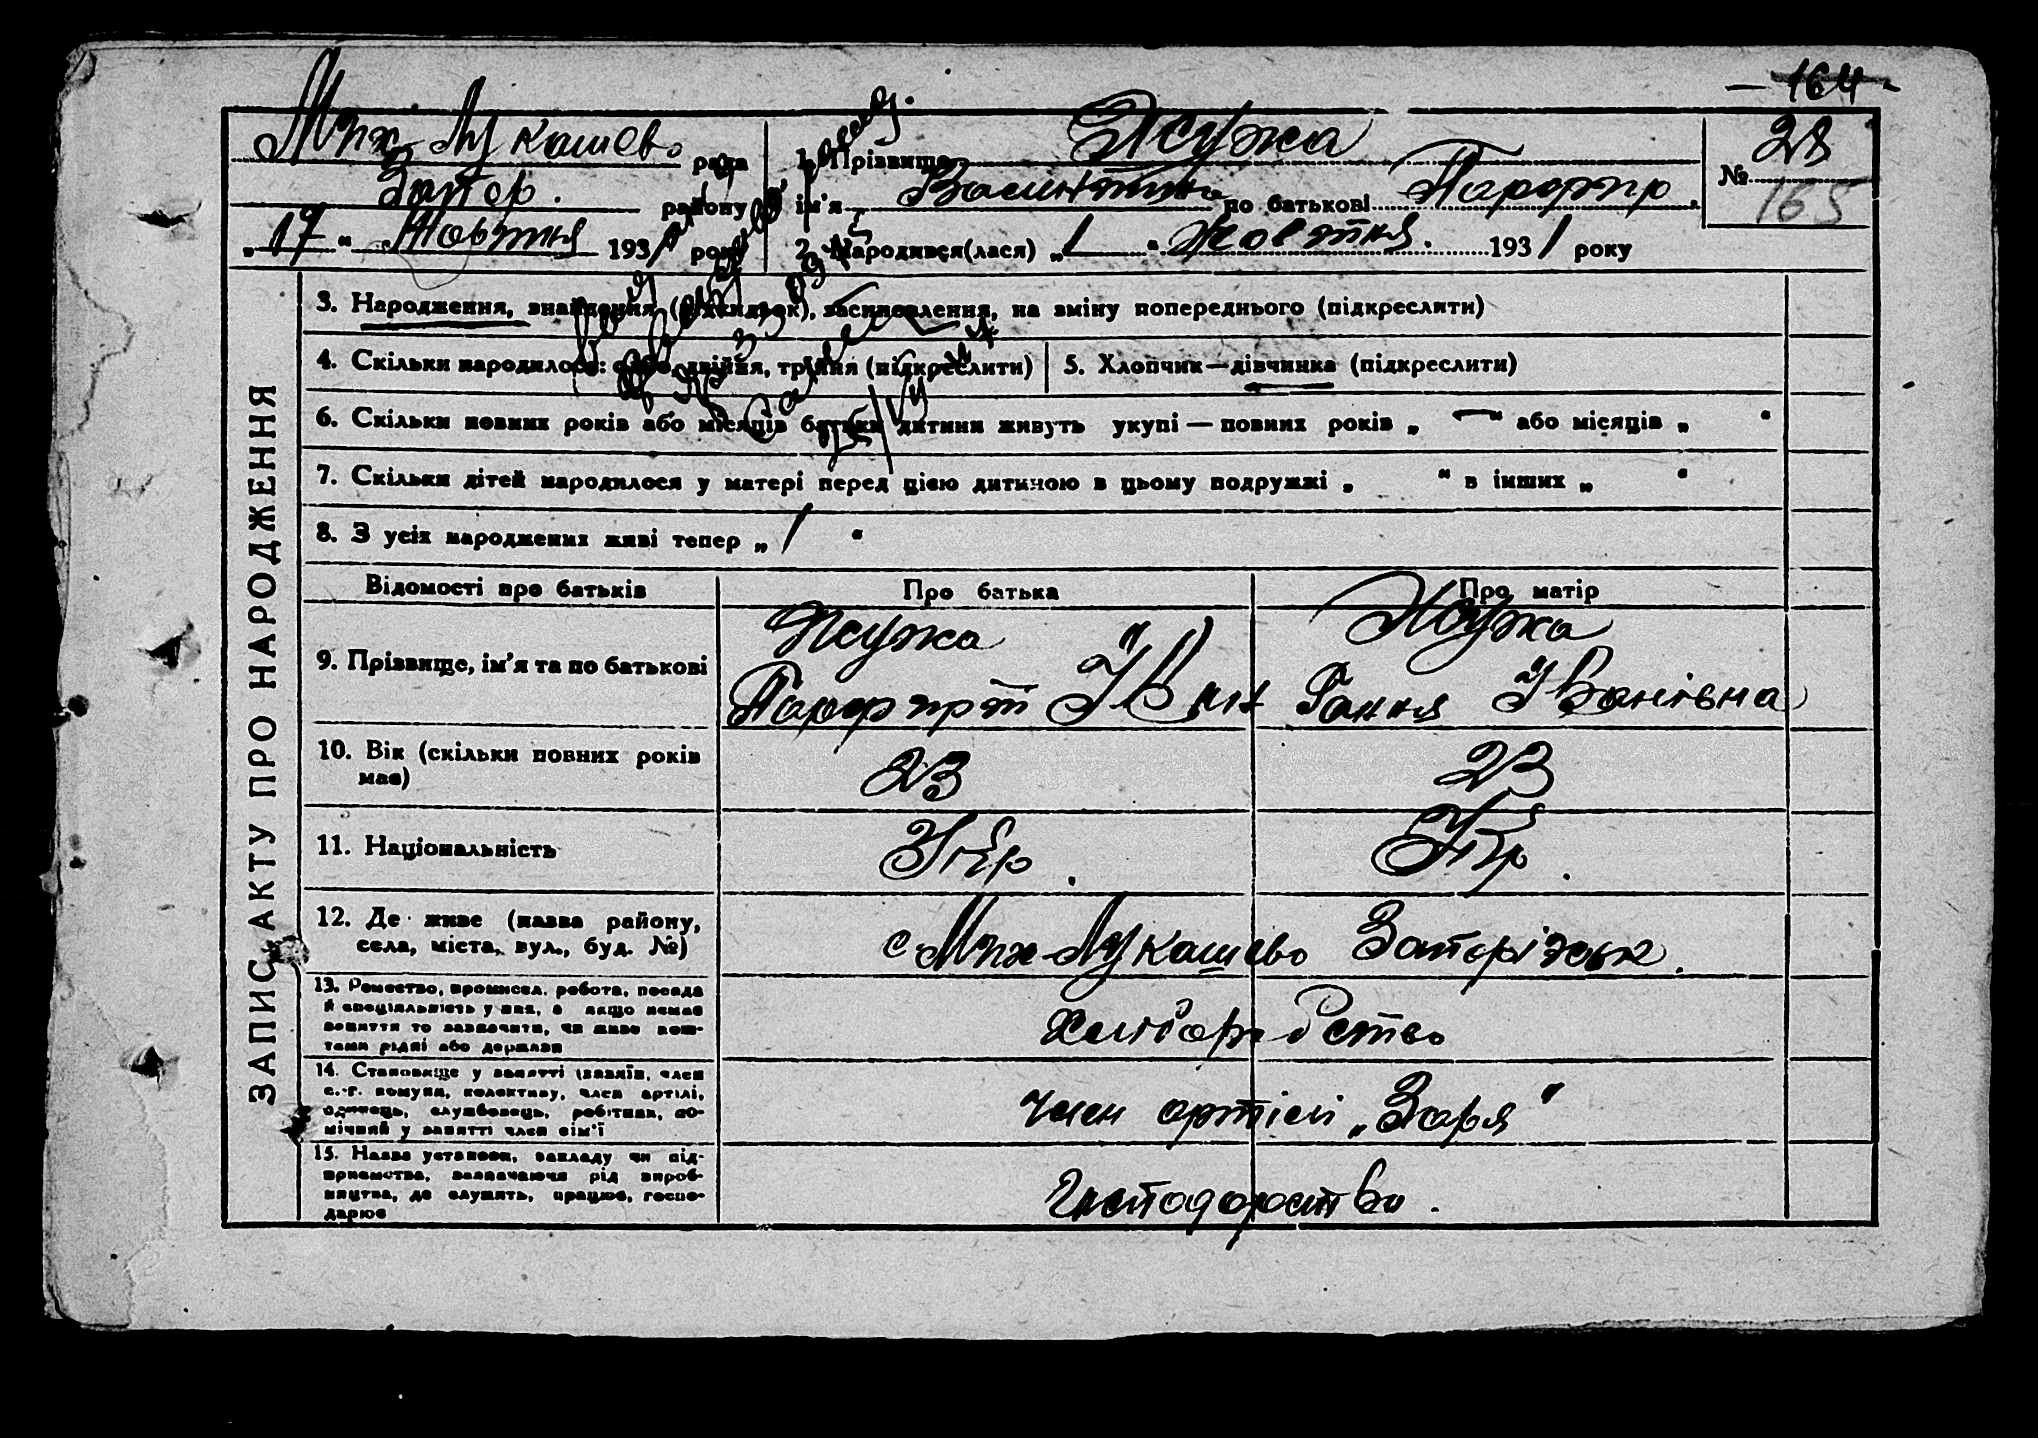 164
Мих-Лукашево рада
Запор. району
„17“ Жовтня 1931 року
1. Прізвище
ім'я Валентина по батькові Парфир.
2. Народився(лася) „1“ Жовтня. 1931 року
№ 28
165
ЗАПИС АКТУ ПРО НАРОДЖЕННЯ
3. Народження, знайдення (підкидьок), засиновлення, на зміну попереднього (підкреслити)
4. Скільки народилося: одно, двійня, трійня (підкреслити) 5. Хлопчик—дівчинка (підкреслити)
6. Скільки повних років або місяців батьки дитини живуть укупі — повних років „ — “ або місяців „ “
7. Скільки дітей народилося у матері перед цією дитиною в цьому подружжі „ “ в інших „ “
8. З усіх народжених живі тепер „1“
Відомості про батьків Про батька Про матір
9. Прізвище, ім'я та по батькові
Ганна Іванівна
10. Вік (скільки повних років має) 23 23
11. Національність Укр. Укр.
12. Де живе (назва району, села, міста, вул., буд. №)
с Мих-Лукашево Запоріжськ.
13. Ремество, промисел, робота, посада
й спеціяльність у них, а якщо немає
заняття то зазначити, чи живе кош-
тами рідні або держави
Хліборобство
14. Становище у занятті (хазяїн, член
с.-г. комуни, колективу, член артілі,
одинець, службовець, робітник, по-
мічний у занятті член сім'ї
член артілі „Заря“
15. Назва установи, закладу чи під-
приємства, зазначаючи рід вироб-
ництва, де служить, працює, госпо-
дарює
Господарство.